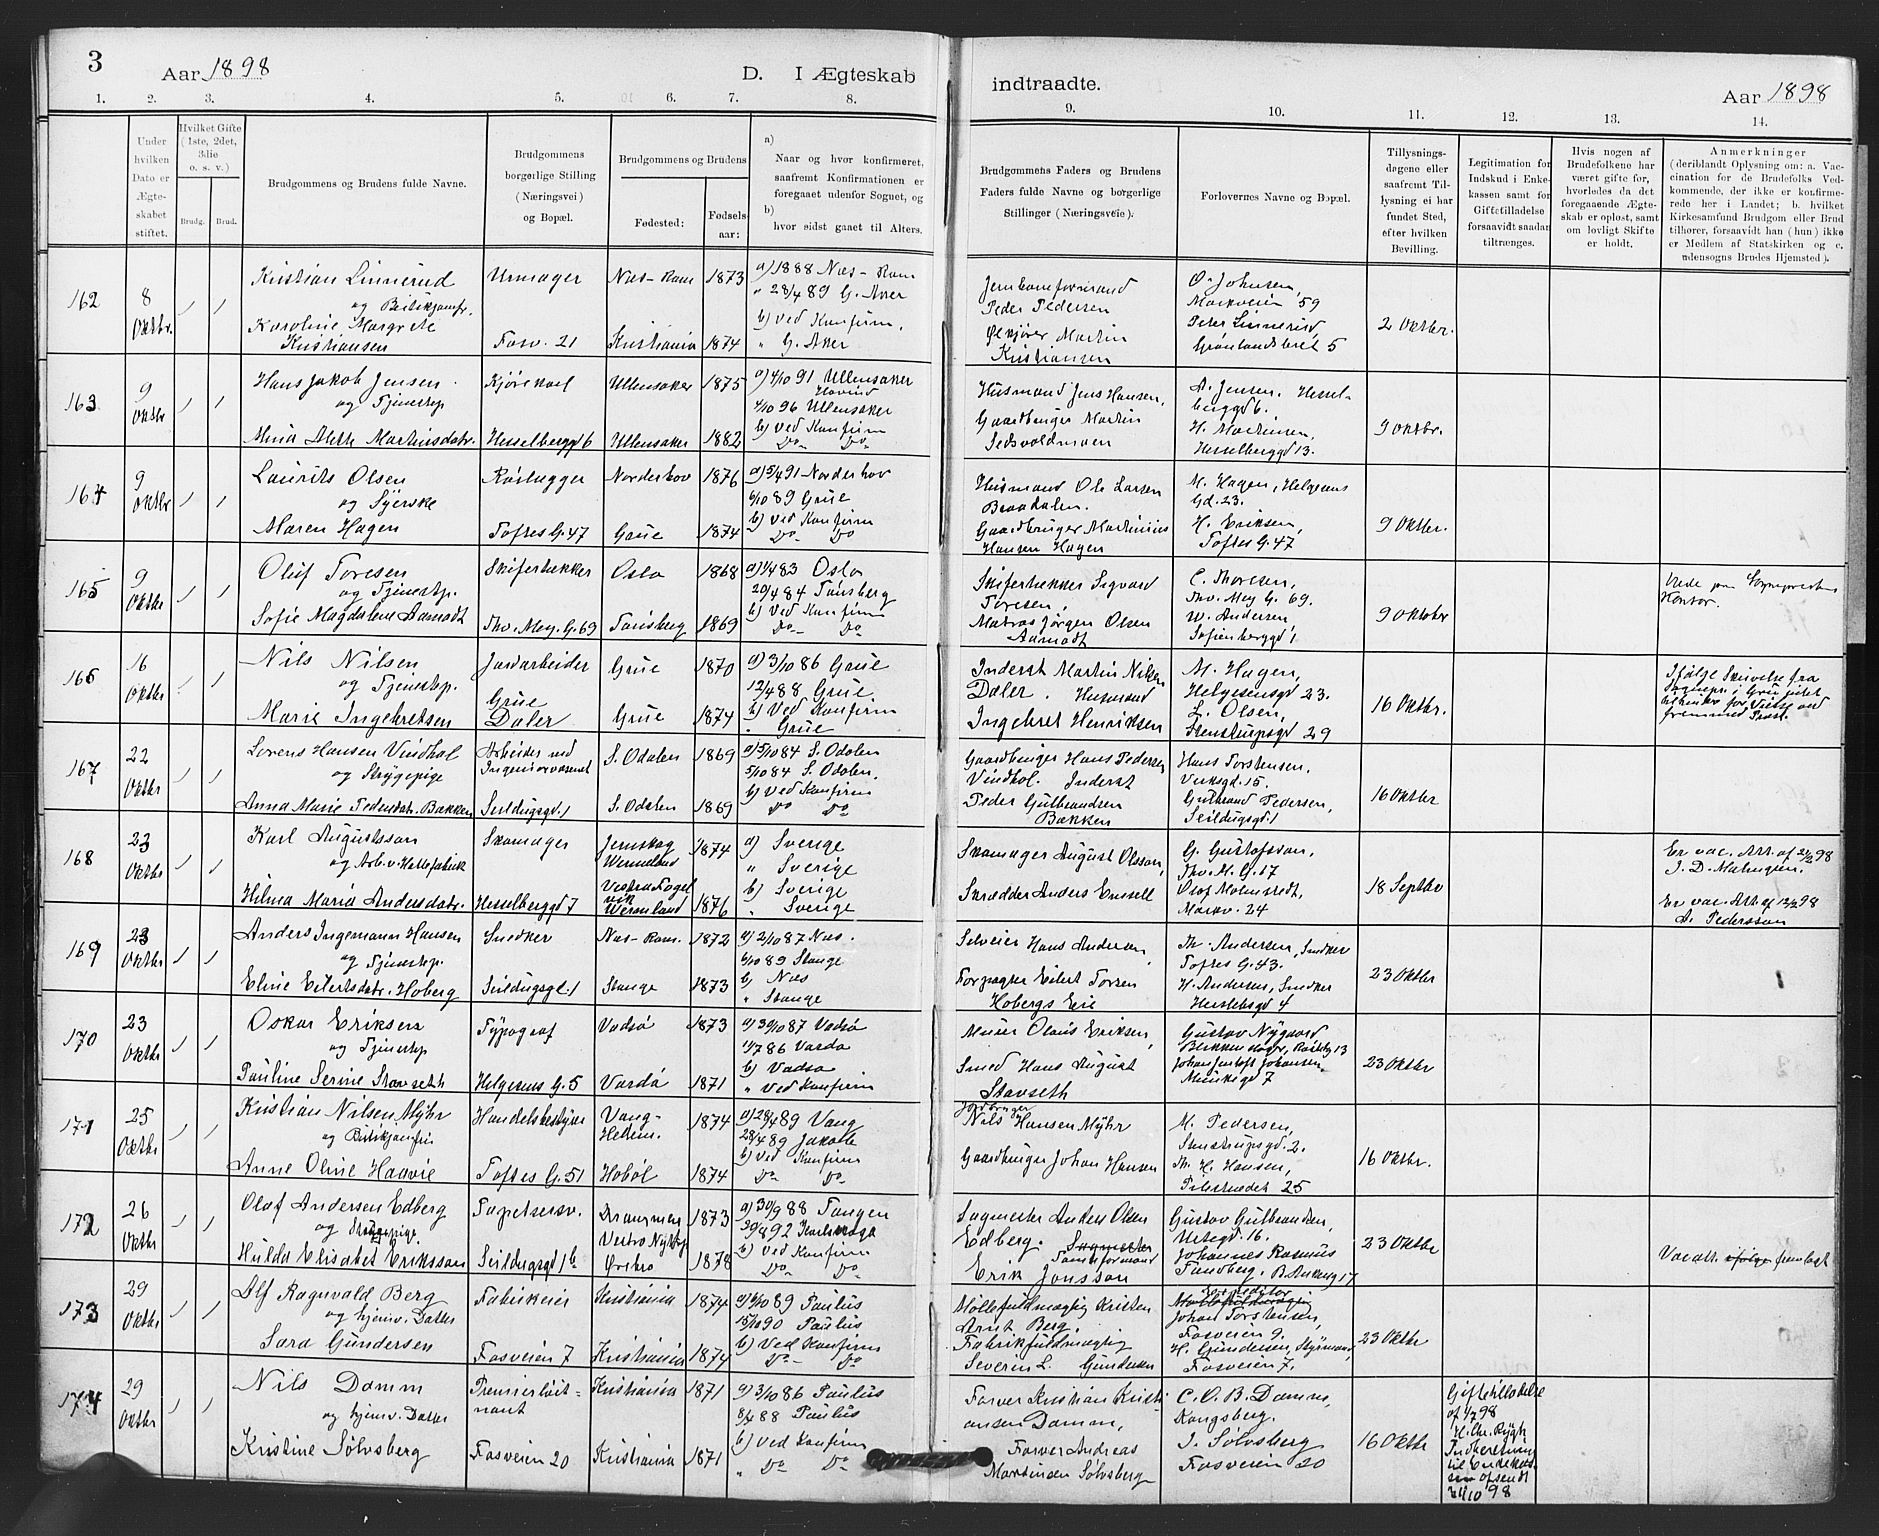 3
Aar 1898
D. I Ægteskab
indtraadte.
Aar 1898
1. 2. 3. 4. 5. 6. 7. 8. 9. 10. 11. 12. 13. 14.
Under hvilken Dato er Ægteskabet stiftet.
Hvilket Gifte (1ste, 2det, 3die o. s. v.)
Brudg. Brud.
Brudgommens og Brudens fulde Navne.
Brudgommens borgerlige Stilling (Næringsvei) og Bopæl.
Brudgommens og Brudens
Fødested:
Fødselsaar:
a) Naar og hvor konfirmeret, saafremt Konfirmationen er foregaaet udenfor Sognet, og
b) hvor sidst gaaet til Alters.
Brudgommens Faders og Brudens Faders fulde Navne og borgerlige Stillinger (Næringsveie).
Forlovernes Navne og Bopæl.
Tillysningsdagene eller saafremt Tillysning ei har fundet Sted, efter hvilken Bevilling.
Legitimation for Indskud i Enkekassen samt for Giftetilladelse forsaavidt saadan tiltrænges.
Hvis nogen af Brudefolkene har været gifte før, hvorledes da det foregaaende Ægteskab er opløst, samt om lovligt Skifte er holdt.
Anmerkninger (deriblandt Oplysning om: a. Vaccination for de Brudefolks Vedkommende, der ikke er konfirmerede her i Landet; b. hvilket Kirkesamfund Brudgom eller Brud tilhører, forsaavidt han (hun) ikke er Medlem af Statskirken og c. udensogns Brudes Hjemsted).
162
8 Oktbr.
Kristian Linnerud
og Butikjomfr.
Karoline Margrete Kristiansen
Urmager
Fosv. 21
Næs-Rom 1873
Kristiania 1874
a) 1888 Næs-Rom
" 28/4 89 G. Aker
b) Ved Konfirm.
" G. Aker
Jernbaneformand
Peder Pedersen
Ølkjører Martin
Kristiansen
O. Johnsen,
Markveien 59
Peter Linnerud,
Grønlandsleret 5
2 Oktbr.
163
9 Oktbr
Hans Jakob Jensen
og Tjenestep
Mina Alette Martinsdatr.
Kjørekarl
Hesselberggd 6
Ullensaker 1875
Ullensaker 1882
a) 4/10 91 Ullensaker
Hovind
4/10 96 Ullensaker
b) Ved Konfirm
Do Do
Husmand Jens Hansen,
Gaardbruger Martin
A. Jensen. Hesselberggd 6.
H. Martinsen,
Hesselberggd 13.
9 oktbr.
164
9 oktbr
Laurits Olsen
og Syerske
Maren Hagen
Rørlægger
Toftes G. 47
Norderhov 1876
Grue 1874
a) 5/4 91 Norderhov
6/10 89 Grue
b) Ved Konfirm
Do Do
Husmand Ole Larsen
Braadalen.
Gaardbruger Martinius
Hansen Hagen
M. Hagen, Helgesens
Gd. 23.
H. Eriksen,
Toftes G. 47
9 Oktbr.
165
9 Oktbr
Oluf Toresen
og Tjenestp.
Sofie Magdalene Aamodt
Skifertækker
Thv. Mey. G. 69
Oslo 1868
Tønsberg 1869
a) 1/4 83 Oslo
20/4 84 Tønsberg
b) Ved Konfirm
Do Do
Skifertækker Sigvard
Toresen,
Matros Jørgen Olsen
Aamodt
C. Thoresen,
Thv. Mey G. 69.
W. Andersen,
Sofienberggd 1
9 Oktober
Viede paa Sogneprestens
Kontor.
166
16 Oktbr
Nils Nilsen
og Tjenestp.
Marie Ingebretsen
Jordarbeider
Grue
Dåler
Grue 1870
Grue 1874
a) 3/10 86 Grue
12/4 88 Grue.
b) Ved Konfirm
. Grue
Inderst Martin Nilsen
Dåler. Husmand
Ingebret Henriksen
M. Hagen,
Helgesensgd 23.
L. Olsen,
Stenstrupsgd 29
16 Oktbr.
Ifølge Skrivelse fra
Sognepr. i Grue
fremmed Prest.
167
22 Oktbr
Lorens Hansen Vindhol
og Strygepige
Anna Marie Pedersdatr. Bakken
Arbeider ved
Ingeniørvæsenet
Seildugsgd. 1
S. Odalen 1869
S. Odalen 1869
a) 5/10 84 S. Odalen
5/10 84 S. Odalen.
b) Ved Konfirm
Do Do
Gaardbruger Hans Pedersen
Vindhol. Inderst
Peder Gulbrandsen
Bakken
Hans Torstensen,
Verksgd. 15.
Gulbrand Pedersen,
Seildugsgd 1
16 Oktbr
168
23 Oktbr
Karl Augustsson
og Arb. v.
Hilma Maria Andersdatr.
Skomager
Hesselberggd 7
Jernskog
Wermeland 1874
Vestra Fogelvik
Wermland 1876
a) Sverige
" Sverige
b) Sverige
" Sverige
Skomager August Olsson,
Skrædder Anders Enssell
G. Gustafsson,
Thv. M. G. 17
Olof Malmstedt,
Markv. 24
18 Septbr
Er vac. Att. af 98
J. D. Malmgren.
Er vac. Att. af 12/2 98
A. Pedersson
169
23 Oktbr
Anders Ingemann Hansen
og Tjenestep.
Eline Eilertsdatr. Hoberg
Snedker
Seildugsgd. 1
Næs-Rom. 1872
Stange 1873
a) 2/10 87 Næs.
6/10 89 Stange
b) Næs
" Stange
Selveier Hans Andersen,
Forpagter Eilert Torsen
Hobergs Eie
Th. Andersen, Snedker
Toftes G. 43.
H. Andersen, Snedker
Herslebsgd 4
23 Oktbr
170
23 Oktbr
Oskar Eriksen
og Tjenestep
Pauline Serine Stavseth
Typograf
Helgesens G. 5
Vadsø 1873
Vardø 1871
a) 30/10 87 Vadsø
11/7 86 Vardø
b) Vadsø
" Ved Konfirm
Murer Olaus Eriksen,
Smed Hans August
Stavseth
Gustav Nygaard
Blikkenslager,
Johansen
Munkegd 7
23 Oktbr
171
25 Oktbr
Kristian Nilsen Myhr
og Butikjomfru
Anne Oline Haavie
Handelsbestyrer
Toftes G. 51
Vang-
Hedem. 1874
Hobøl 1874
a) 28/4 89 Vang
28/4 89 Jakobs
b) Ved Konfirm
Do Do
Jordbruger
Nils Hansen Myhr
Gaardbruger Johan Hansen
M. Pedersen,
Stenstrupsgd. 2.
Th. H. Hansen,
Pilestrædet 25
16 Oktbr.
172
26 Oktbr
Olaf Andersen Edberg
og
Hulda Elisabet Eriksson
Tapetserer
Seildugsgd 1b
Drammen 1873
Vestra
Ørebro 1878
a) 30/9 88 Tangen
b) Ved Konfirm
Do Do
Sagmester Anders Olsen
Edberg. Sagmester
Tomteformand
Erik Jonsson
Gustav Gulbrandsen,
Urtegd. 16.
Johannes Rasmus
Tandberg,
23 Oktbr
Vacatt. ifølge fremlagt
173
29 Oktbr
Alf Ragnvald Berg
og hjemv. Datter
Sara Gundersen
Fabrikeier
Fosveien 7
Kristiania 1874
Kristiania 1874
a) 6/10 89 Paulus
5/10 90 Paulus
b) Ved Konfirm
Do Do
Møllefuldmægtig Kristen
Arnt Berg.
Fabrikfuldmægtig
Severin L. Gundersen
Expeditør
Møllefuldmægtig
Johan Torstensen,
Fosveien 9.
H. Gundersen, Styrmand,
Fosveien 7.
23 Oktbr
174
29 Oktbr
Nils Damm
og hjemv. Datter
Kristine Sølvsberg
Premierløitnant
Fosveien 20
Kristiania 1871
Kristiania 1871
a) 3/10 86 Paulus
8/4 88 Paulus
b) Ved Konfirm
" Do Do
Farver Kristian Kristiansen
Damm,
Farver Andreas
Martinsen Sølvsberg
C. O. B. Damm,
Kongsberg.
J. Sølvsberg
Fosveien 20
16 Oktbr
Giftetilladelse
af 1/7 98
H. Chr. Rygh
Indberetning
til Enkekassen
afsendt
31/10 98